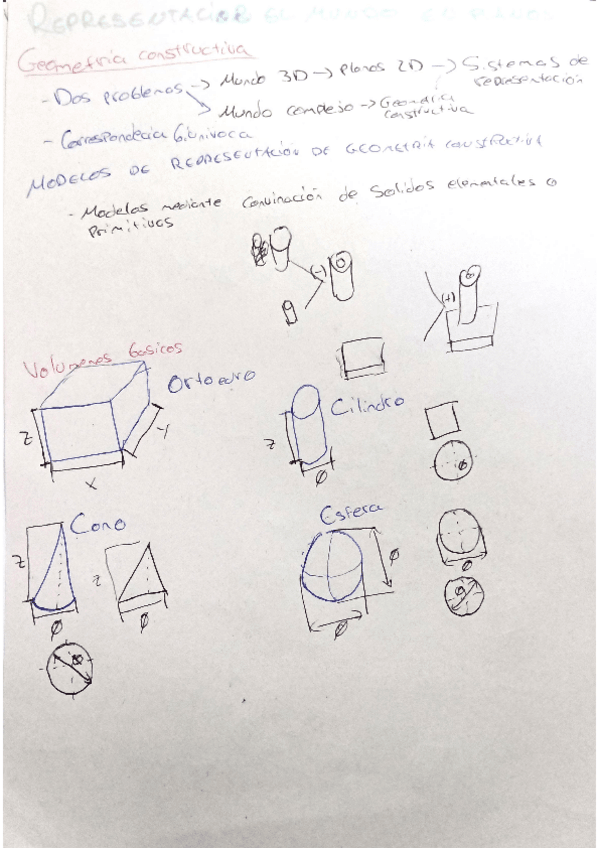 REPRESENTACIÓN EL MUNDO EN PLANOS
Geometria constructiva
- Dos problemas → Mundo 3D → Planos 2D → Sistemas de representación
Mundo complejo → Geometria constructiva
- Correspondecia biunivoca
MODELOS DE REPRESENTACIÓN DE GEOMETRIA CONSTRUCTIVA
- Modelos mediante convinación de solidos elementales o
primitivos
(-)
(+)
Volumenes basicos
Ortoedro
Z
Y
X
Cilindro
Z
Ø
Ø
Cono
Z
Ø
Z
Ø
Ø
Esfera
Ø
Ø
Ø
Ø